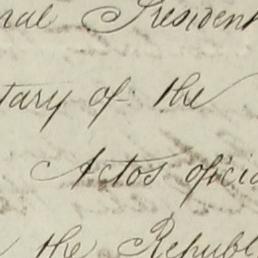 nal President
tary of the
Actos oficia
the Republ